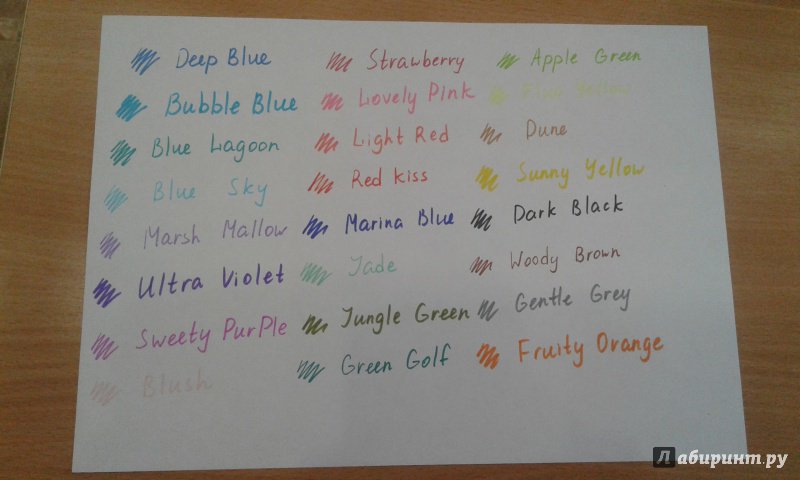 Deep Blue
Bubble Blue
Blue Lagoon
Blue Sky
Marsh Mallow
Ultra Violet
Sweety PurPle
Blush
Strawberry
Lovely Pink
Light Red
Red Kiss
Marina Blue
Jade
Jungle Green
Green Golf
Apple Green
Yellow
Dune
Sunny Yellow
Dark Black
Woody Brown
Gentle Grey
Fruity Orange
Лабиринт.ру